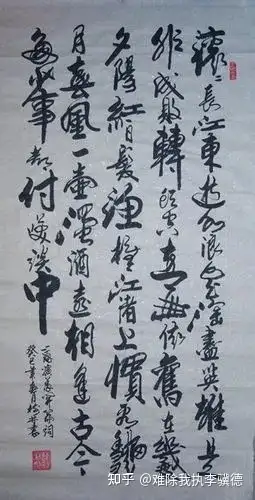 滚滚長江東逝水浪花淘盡英雄是
非成敗轉頭空青山依舊在幾度
夕陽紅白髮漁樵江渚上慣看秋
月春風一壺濁酒喜相逢古今
多少事都付笑談中
癸巳年
知乎 @难除我执李骥德